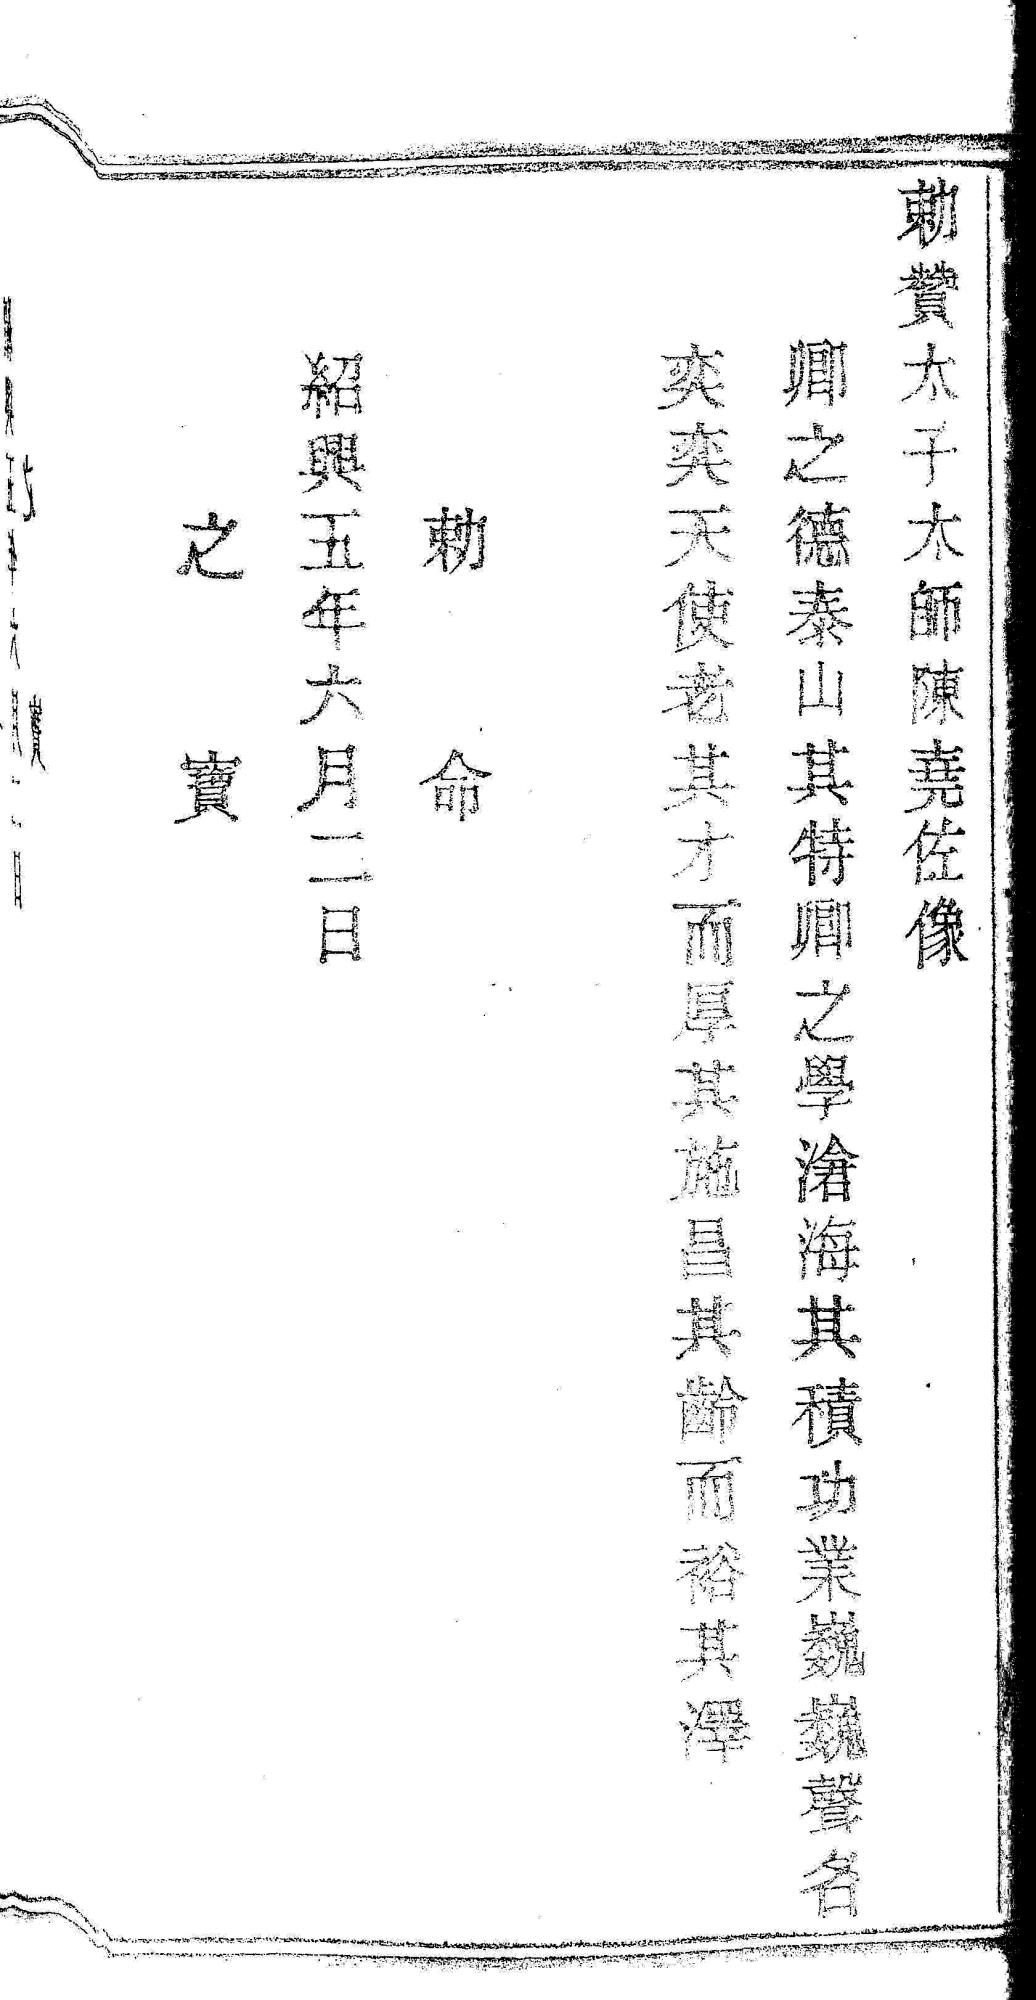 勅贊太子太師陳堯佐像
卿之德泰山其特卿之學滄海其積功業巍巍聲名
奕奕天使老其才而厚其施昌其齡而裕其澤
勅命
紹興五年六月二日
之寶